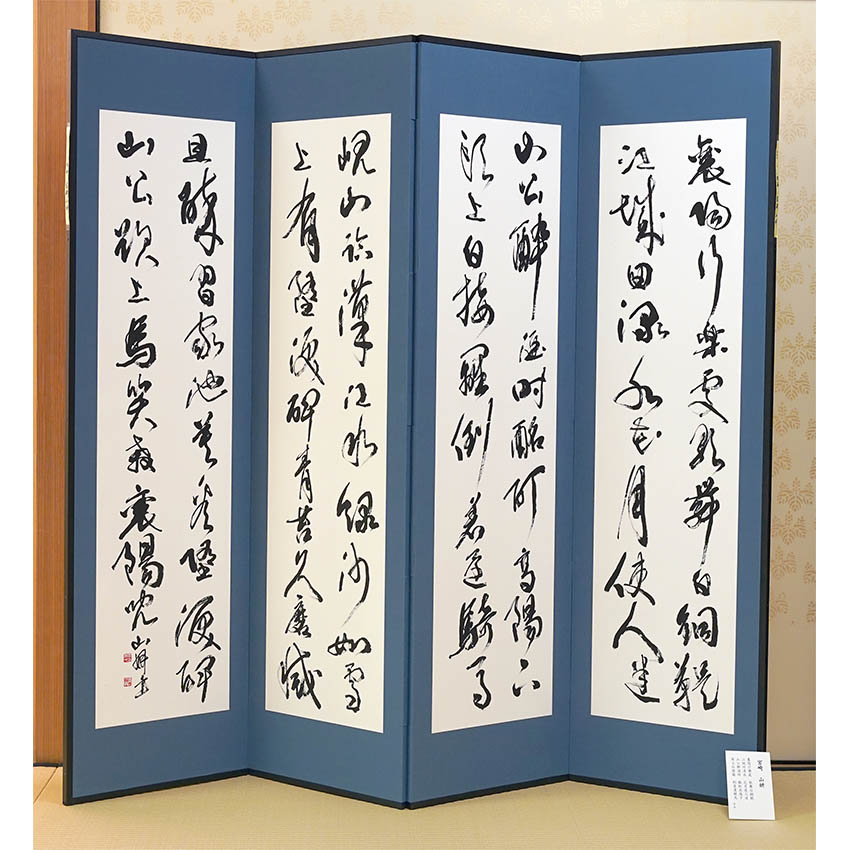 襄陽行楽處歌舞白銅鞮
江城回淥水花月使人迷
山公醉酒時酩酊高陽下
頭上白接䍦倒著還騎馬
峴山臨漢江水緑沙如雪
上有墮涙碑青苔久磨滅
且酔習家池莫看墮涙碑
山公欲上馬笑殺襄陽児 山耕書
宮崎 山耕